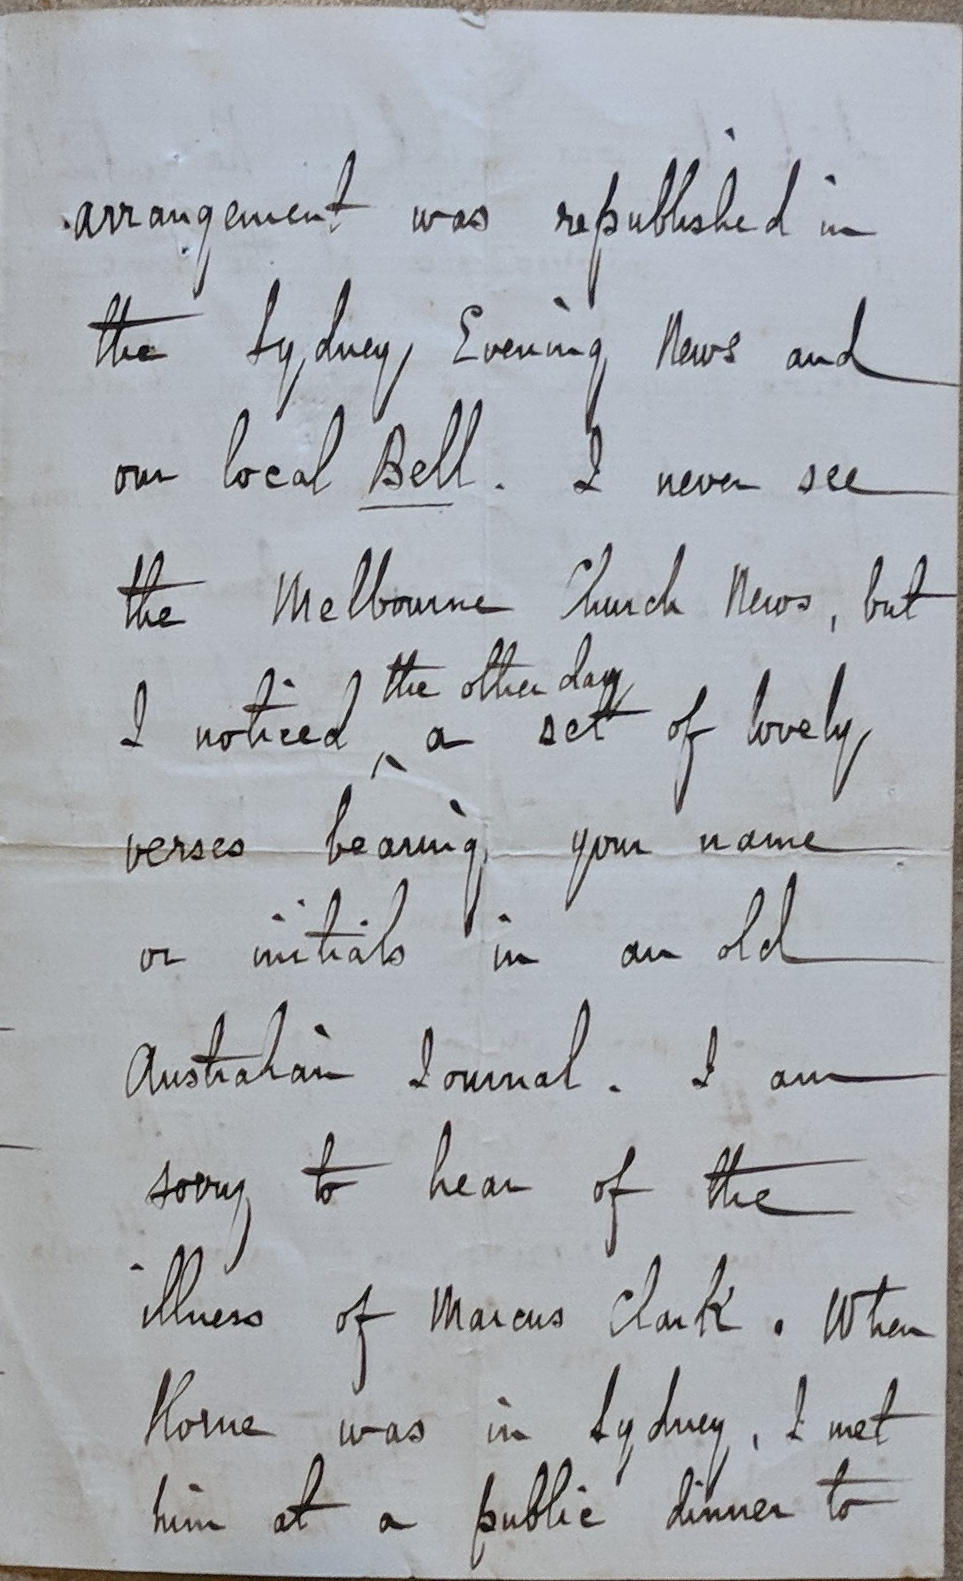 arrangement was republished in
the Sydney Evening News and
our local Bell. I never see
the Melbourne Church News, but
the other day
I noticed ^ a set of lovely
verses bearing your name
or initials in an old
Australian Journal. I am
sorry to hear of the
illness of Marcus Clark. When
Horne was in Sydney, I met
him at a public dinner to